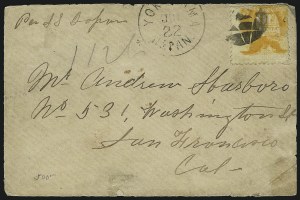 Per SS
YOKOHAMA
22
JAPAN
Mr Andrew Hasboro
No 531, Washington St
San Francisco
Cal